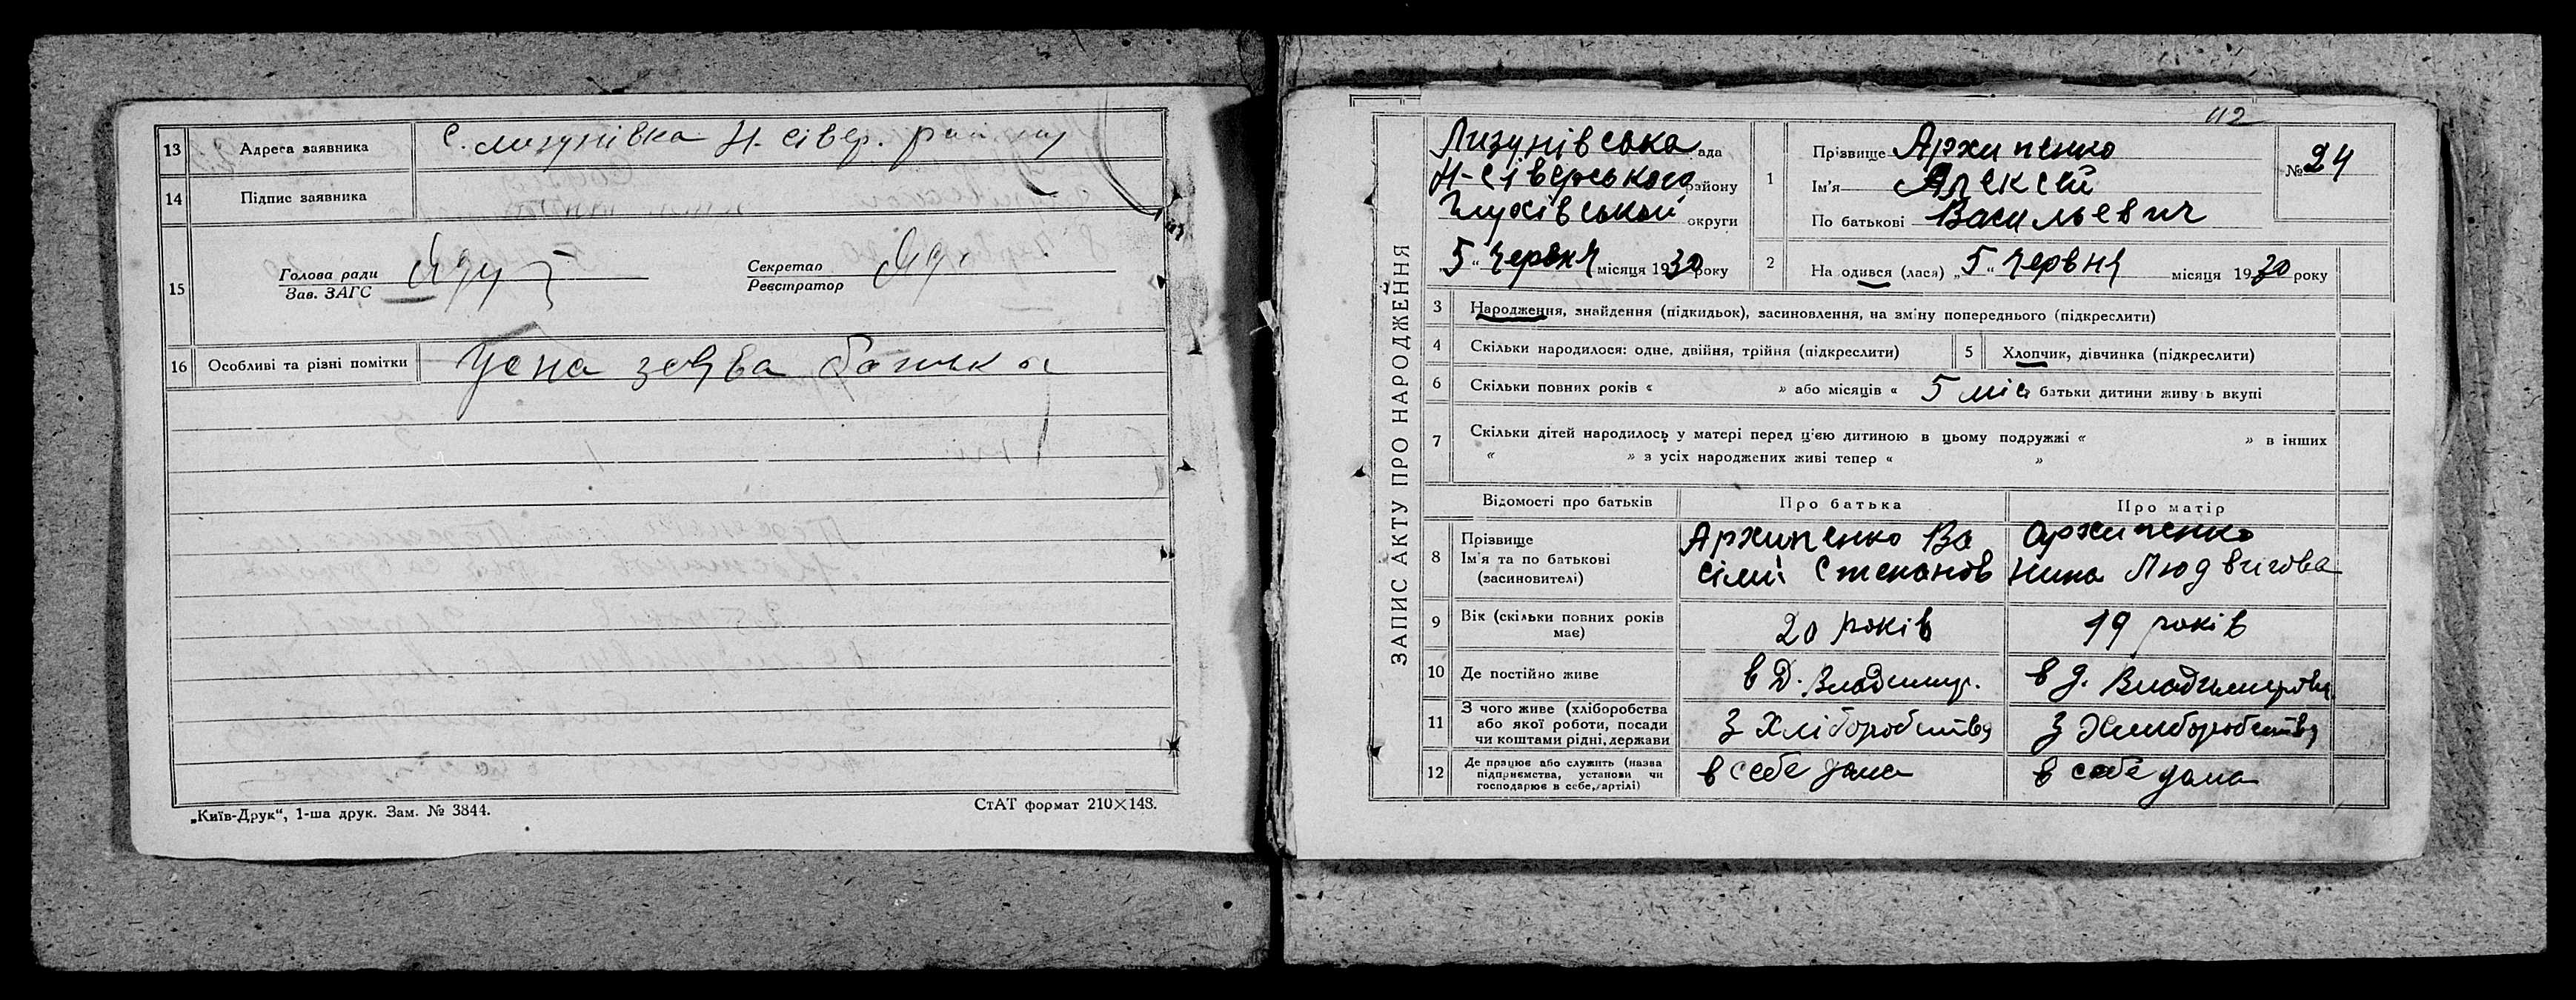 13 Адреса заявника с. Лизунівка Н-сівер. району
14 Підпис заявника
15 Голова ради
Зав. ЗАГС
Секретар
Реєстратор
16 Особливі та різні помітки Усна заява батька
„Київ-Друк“, 1-ша друк. Зам. № 3844.
СтАТ формат 210×148.
112
ЗАПИС АКТУ ПРО НАРОДЖЕННЯ
Лизунівська рада
Н-Сіверського району
Глухівській округи
„5“ Червня місяця 1930 року
1 Прізвище Архипенко
Ім'я Алексей
По батькові Васильевич
№ 24
2 На одився (лася) „5“ Червня місяця 1930 року
3 Народження, знайдення (підкидьок), засиновлення, на зміну попереднього (підкреслити)
4 Скільки народилося: одне, двійня, трійня (підкреслити) 5 Хлопчик, дівчинка (підкреслити)
6 Скільки повних років « » або місяців « 5 міс батьки дитини живуть вкупі
7 Скільки дітей народилось у матері перед ц'єю дитиною в цьому подружжі « » в інших
« » з усіх народжених живі тепер « »
Відомості про батьків Про батька Про матір
8 Прізвище
Ім'я та по батькові
(засновителі)
Архипенко Ва
сілий Степанов
Архипенко
Нина Людвигова
9 Вік (скільки повних років
має)
20 років 19 років
10 Де постійно живе в Д. Владимир. в д. Владимировка
11 З чого живе (хліборобства
або якої роботи, посади
чи коштами рідні, держави
З Хліборобства З Хлиборобства
12 Де працює або служить (назва
підприємства, установи чи
господарює в себе, артілі)
в себе дома в себе дома